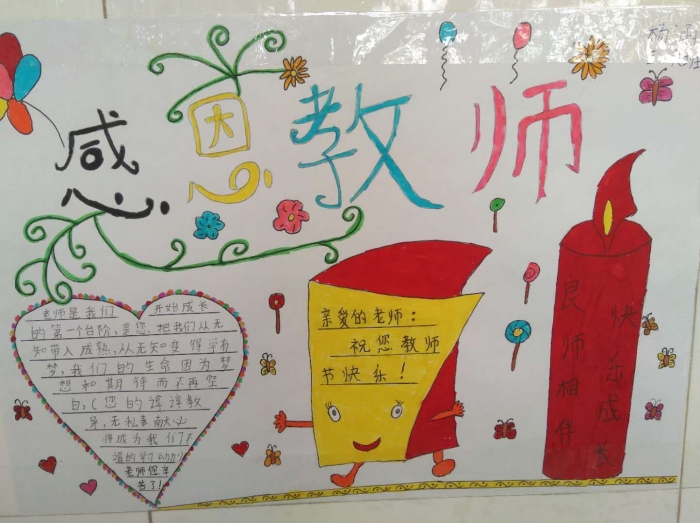 感恩教师
老师是我们 开始成长
的第一个台阶,是您把我们从无
知带入成熟,从无知变得学有
梦,我们的生命因为梦
想和期待而不再空
白,(您的谆谆教
导,无私奉献
将成为我们
老师您辛
苦了!
亲爱的老师:
祝您教师
节快乐!
良师相伴
快乐成长